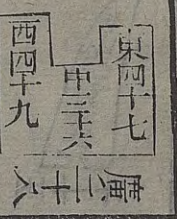 東四十七
中三十六
西四十九
廣二十八